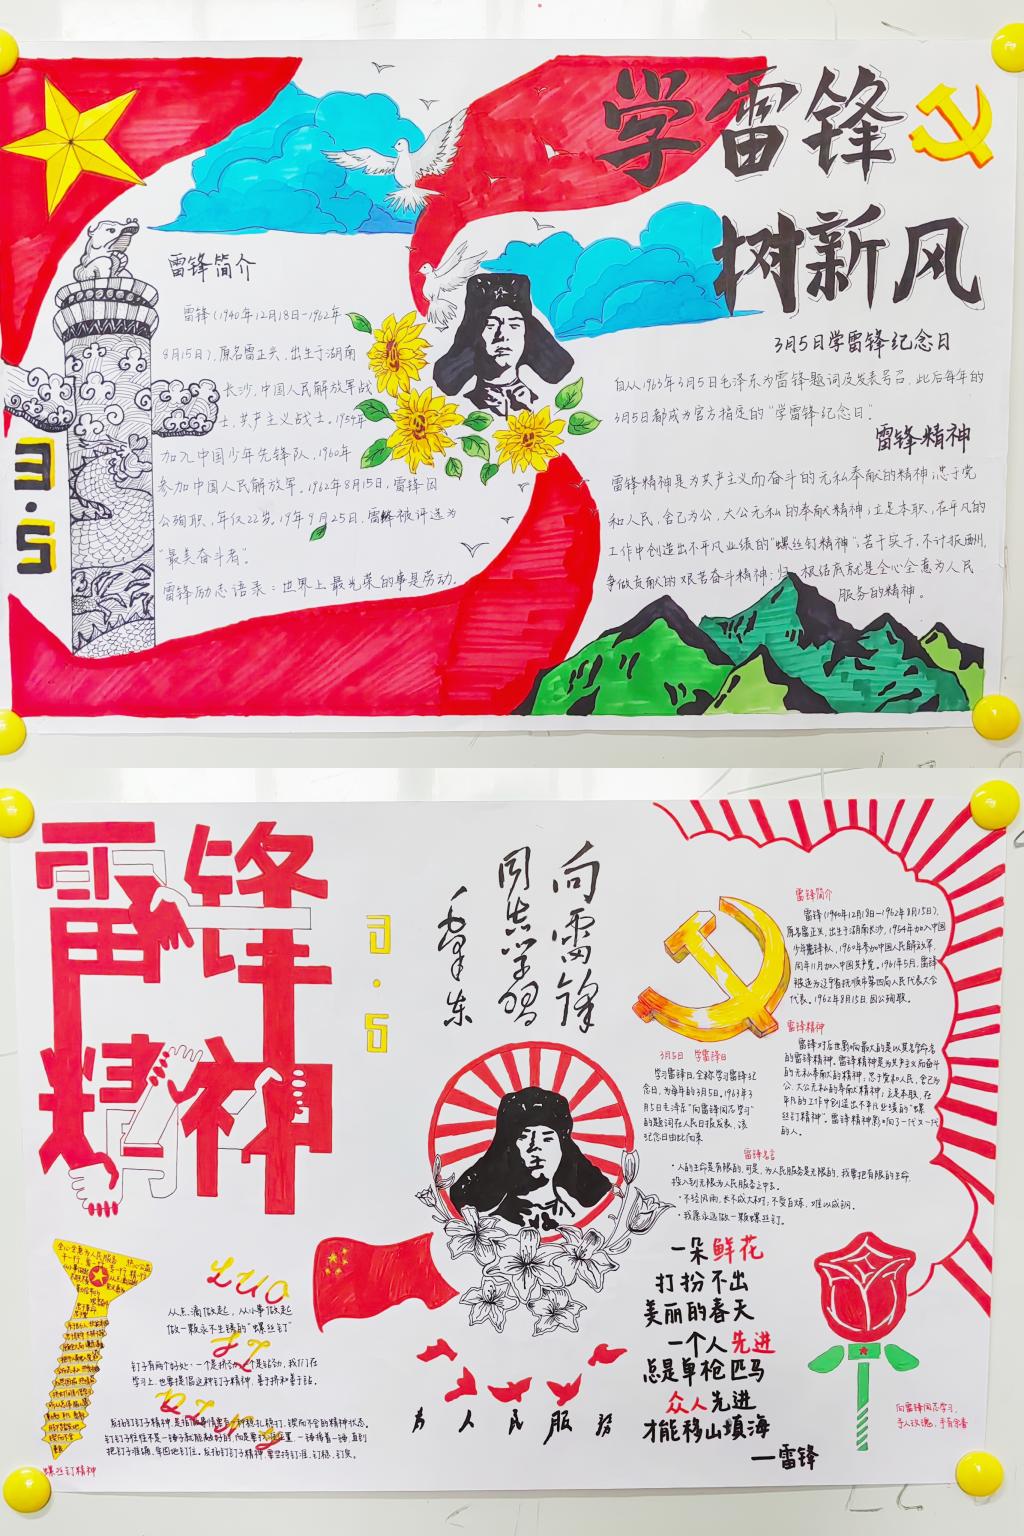 学雷锋
树新风
雷锋简介
雷锋(1940年12月18日-1962年
8月15日),原名雷正兴,出生于湖南
长沙,中国人民解放军战
士,共产主义战士。1954年
加入中国少年先锋队,1960年
参加中国人民解放军。1962年8月15日,雷锋因
公殉职,年仅22岁。19年9月25日,雷锋被评选为
“最美奋斗者”。
雷锋励志语录:世界上最光荣的事是劳动。
3.5
3月5日学雷锋纪念日
自从1963年3月5日毛泽东为雷锋题词及发表号召,此后每年的
3月5日都成为官方指定的“学雷锋纪念日”。
雷锋精神
雷锋精神是为共产主义而奋斗的无私奉献的精神;忠于党
和人民,舍己为公,大公无私的奉献精神;立足本职,在平凡的
工作中创造出不平凡业绩的“螺丝钉精神”;苦干实干,不计报酬,
争做贡献的艰苦奋斗精神;归 根结底就是全心全意为人民
服务的精神。
雷锋
精神
3.5
向雷锋
同志学习
毛泽东
雷锋简介
雷锋(1940年12月18日-1962年8月15日),
原名雷正兴,出生于湖南长沙,1954年加入中国
少年先锋队,1960年参加中国人民解放军,
同年11月加入中国共产党。1961年5月,雷锋
被选为辽宁省抚顺市第四届人民代表大会
代表。1962年8月15日因公殉职。
雷锋精神
雷锋对后世影响最大的是以其名字命名
的雷锋精神。雷锋精神是为共产主义而奋斗
的无私奉献的精神;忠于党和人民,舍己为
公、大公无私的奉献精神;立足本职,在
平凡的工作中创造出不平凡业绩的“螺
丝钉精神”。雷锋精神影响了一代又一代
的人。
3月5日 学雷锋日
学习雷锋日,全称学习雷锋纪
念日,为每年的3月5日。1963年3
月5日毛泽东“向雷锋同志学习”
的题词在人民日报发表,该
纪念日由此向来
雷锋名言
·人的生命是有限的,可是,为人民服务是无限的,我要把有限的生命,
投入到无限为人民服务之中去。
·不经风雨,长不成大树;不受百炼,难以成钢。
·我愿永远做一颗螺丝钉。
一朵鲜花
打扮不出
美丽的春天
一个人先进
总是单枪匹马
众人先进
才能移山填海
—雷锋
LUO
从点滴做起,从小事做起
做一颗永不生锈的“螺丝钉”
钉子有两个好处:一个是挤劲,一个是钻劲,我们在
学习上,也要提倡这种钉子精神,善于挤和善于钻。
螺丝钉精神
为人民服务
向雷锋同志学习,
予人玫瑰,手有余香